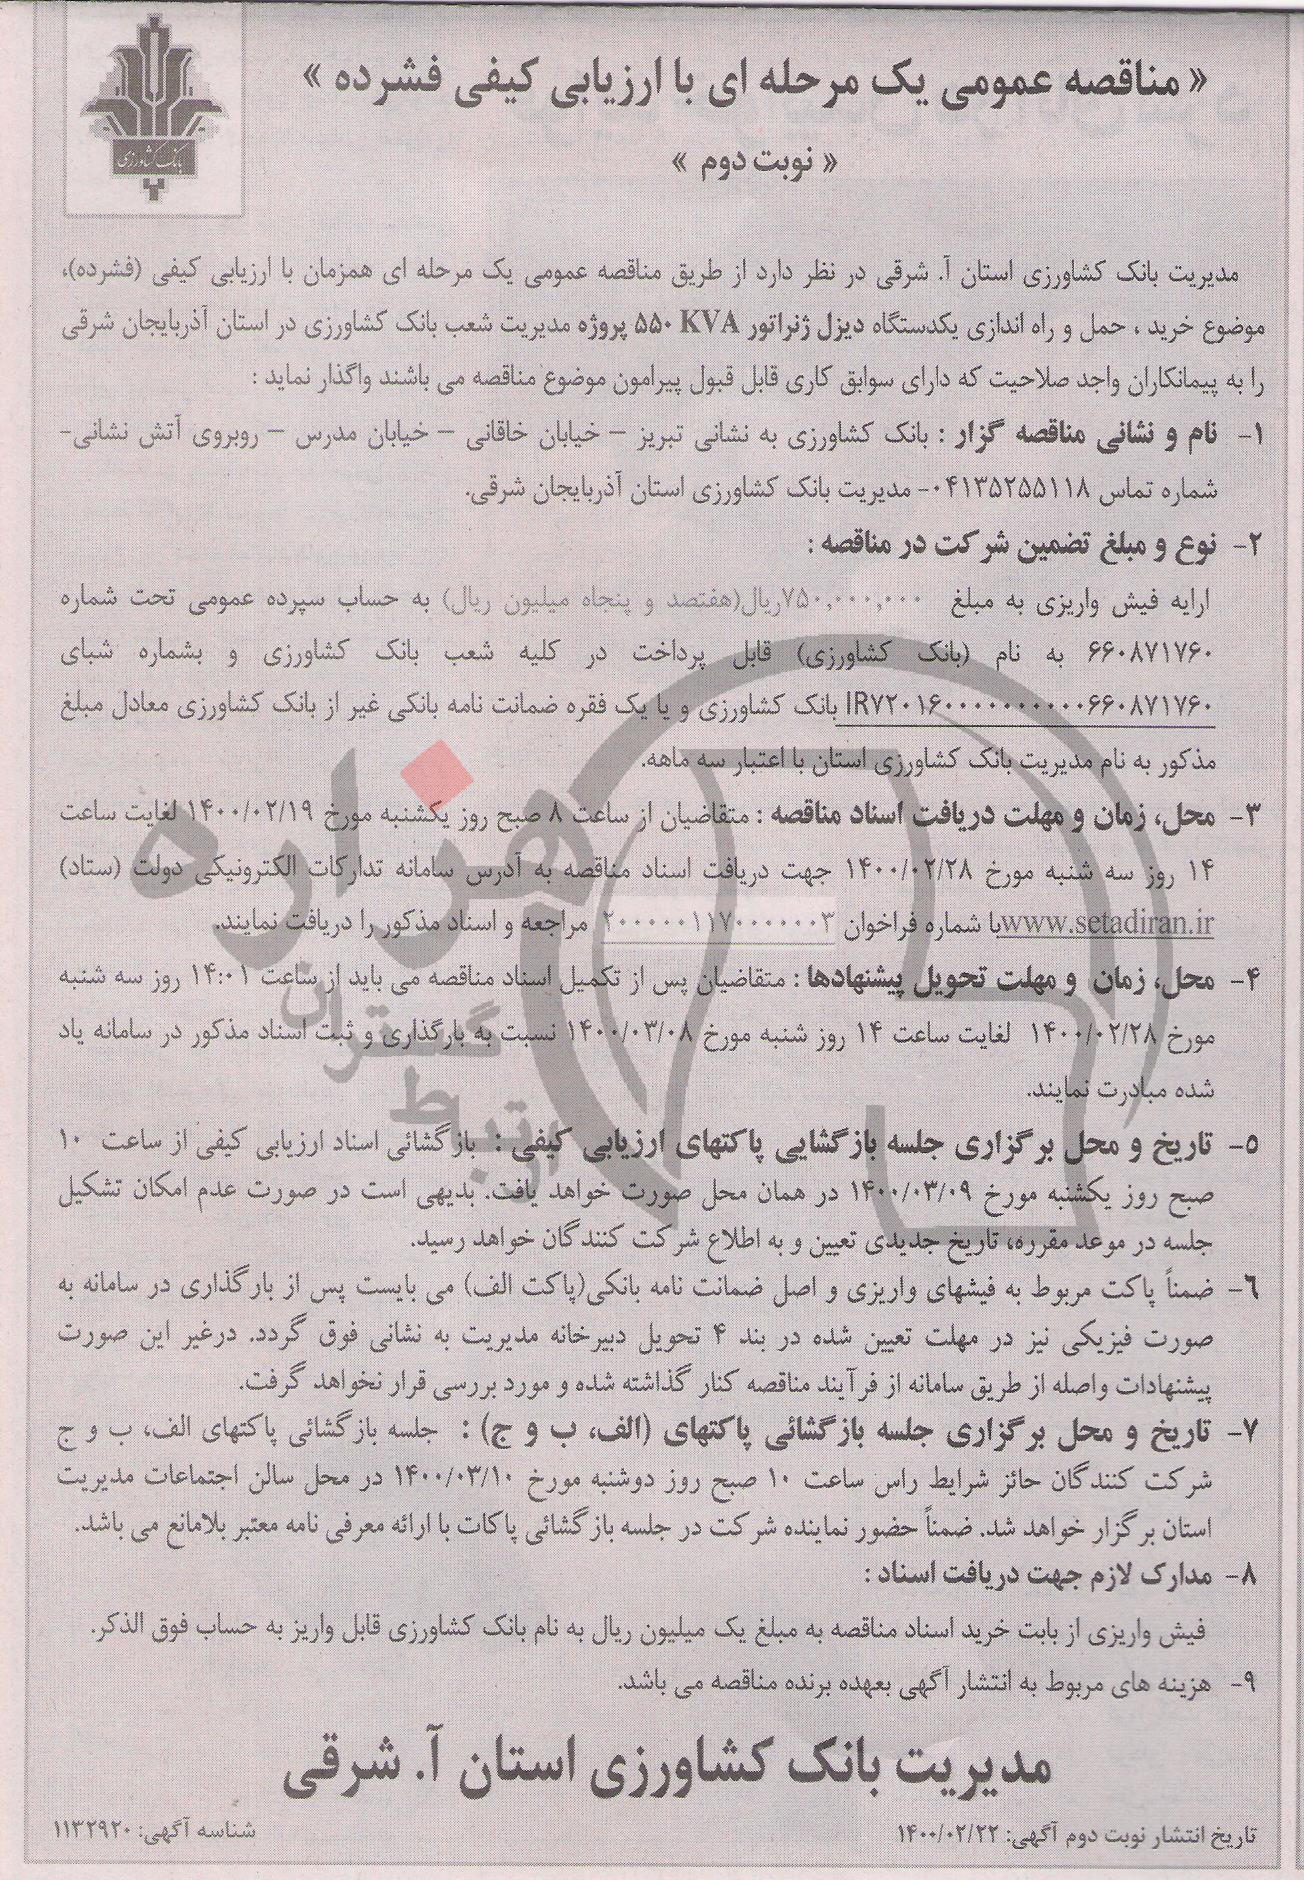 « مناقصه عمومی یک مرحله ای با ارزیابی کیفی فشرده »
بانک کشاورزی
« نوبت دوم »
مدیریت بانک کشاورزی استان آ. شرقی در نظر دارد از طریق مناقصه عمومی یک مرحله ای همزمان با ارزیابی کیفی (فشرده)،
موضوع خرید ، حمل و راه اندازی یکدستگاه دیزل ژنراتور ۵۵۰ KVA پروژه مدیریت شعب بانک کشاورزی در استان آذربایجان شرقی
را به پیمانکاران واجد صلاحیت که دارای سوابق کاری قابل قبول پیرامون موضوع مناقصه می باشند واگذار نماید :
۱- نام و نشانی مناقصه گزار : بانک کشاورزی به نشانی تبریز – خیابان خاقانی – خیابان مدرس – روبروی آتش نشانی-
شماره تماس ۰۴۱۳۵۲۵۵۱۱۸- مدیریت بانک کشاورزی استان آذربایجان شرقی.
۲- نوع و مبلغ تضمین شرکت در مناقصه :
ارایه فیش واریزی به مبلغ ۷۵۰,۰۰۰,۰۰۰ریال(هفتصد و پنجاه میلیون ریال) به حساب سپرده عمومی تحت شماره
۶۶۰۸۷۱۷۶۰ به نام (بانک کشاورزی) قابل پرداخت در کلیه شعب بانک کشاورزی و بشماره شبای
IR۷۲۰۱۶۰۰۰۰۰۰۰۰۰۰۰۶۶۰۸۷۱۷۶۰ بانک کشاورزی و یا یک فقره ضمانت نامه بانکی غیر از بانک کشاورزی معادل مبلغ
مذکور به نام مدیریت بانک کشاورزی استان با اعتبار سه ماهه.
۳- محل، زمان و مهلت دریافت اسناد مناقصه : متقاضیان از ساعت ۸ صبح روز یکشنبه مورخ ۱۴۰۰/۰۲/۱۹ لغایت ساعت
۱۴ روز سه شنبه مورخ ۱۴۰۰/۰۲/۲۸ جهت دریافت اسناد مناقصه به آدرس سامانه تدارکات الکترونیکی دولت (ستاد)
www.setadiran.ir با شماره فراخوان ۲۰۰۰۰۰۱۱۷۰۰۰۰۰۰۳ مراجعه و اسناد مذکور را دریافت نمایند.
۴- محل، زمان و مهلت تحویل پیشنهادها : متقاضیان پس از تکمیل اسناد مناقصه می باید از ساعت ۱۴:۰۱ روز سه شنبه
مورخ ۱۴۰۰/۰۲/۲۸ لغایت ساعت ۱۴ روز شنبه مورخ ۱۴۰۰/۰۳/۰۸ نسبت به بارگذاری و ثبت اسناد مذکور در سامانه یاد
شده مبادرت نمایند.
۵- تاریخ و محل برگزاری جلسه بازگشایی پاکتهای ارزیابی کیفی : بازگشائی اسناد ارزیابی کیفی از ساعت ۱۰
صبح روز یکشنبه مورخ ۱۴۰۰/۰۳/۰۹ در همان محل صورت خواهد یافت. بدیهی است در صورت عدم امکان تشکیل
جلسه در موعد مقرره، تاریخ جدیدی تعیین و به اطلاع شرکت کنندگان خواهد رسید.
۶- ضمناً پاکت مربوط به فیشهای واریزی و اصل ضمانت نامه بانکی(پاکت الف) می بایست پس از بارگذاری در سامانه به
صورت فیزیکی نیز در مهلت تعیین شده در بند ۴ تحویل دبیرخانه مدیریت به نشانی فوق گردد. درغیر این صورت
پیشنهادات واصله از طریق سامانه از فرآیند مناقصه کنار گذاشته شده و مورد بررسی قرار نخواهد گرفت.
۷- تاریخ و محل برگزاری جلسه بازگشائی پاکتهای (الف، ب و ج) : جلسه بازگشائی پاکتهای الف، ب و ج
شرکت کنندگان حائز شرایط راس ساعت ۱۰ صبح روز دوشنبه مورخ ۱۴۰۰/۰۳/۱۰ در محل سالن اجتماعات مدیریت
استان برگزار خواهد شد. ضمناً حضور نماینده شرکت در جلسه بازگشائی پاکات با ارائه معرفی نامه معتبر بلامانع می باشد.
۸- مدارک لازم جهت دریافت اسناد :
فیش واریزی از بابت خرید اسناد مناقصه به مبلغ یک میلیون ریال به نام بانک کشاورزی قابل واریز به حساب فوق الذکر.
۹- هزینه های مربوط به انتشار آگهی بعهده برنده مناقصه می باشد.
مدیریت بانک کشاورزی استان آ. شرقی
تاریخ انتشار نوبت دوم آگهی: ۱۴۰۰/۰۲/۲۲
شناسه آگهی: ۱۱۳۲۹۲۰
هزاره
گستران
ارتباط